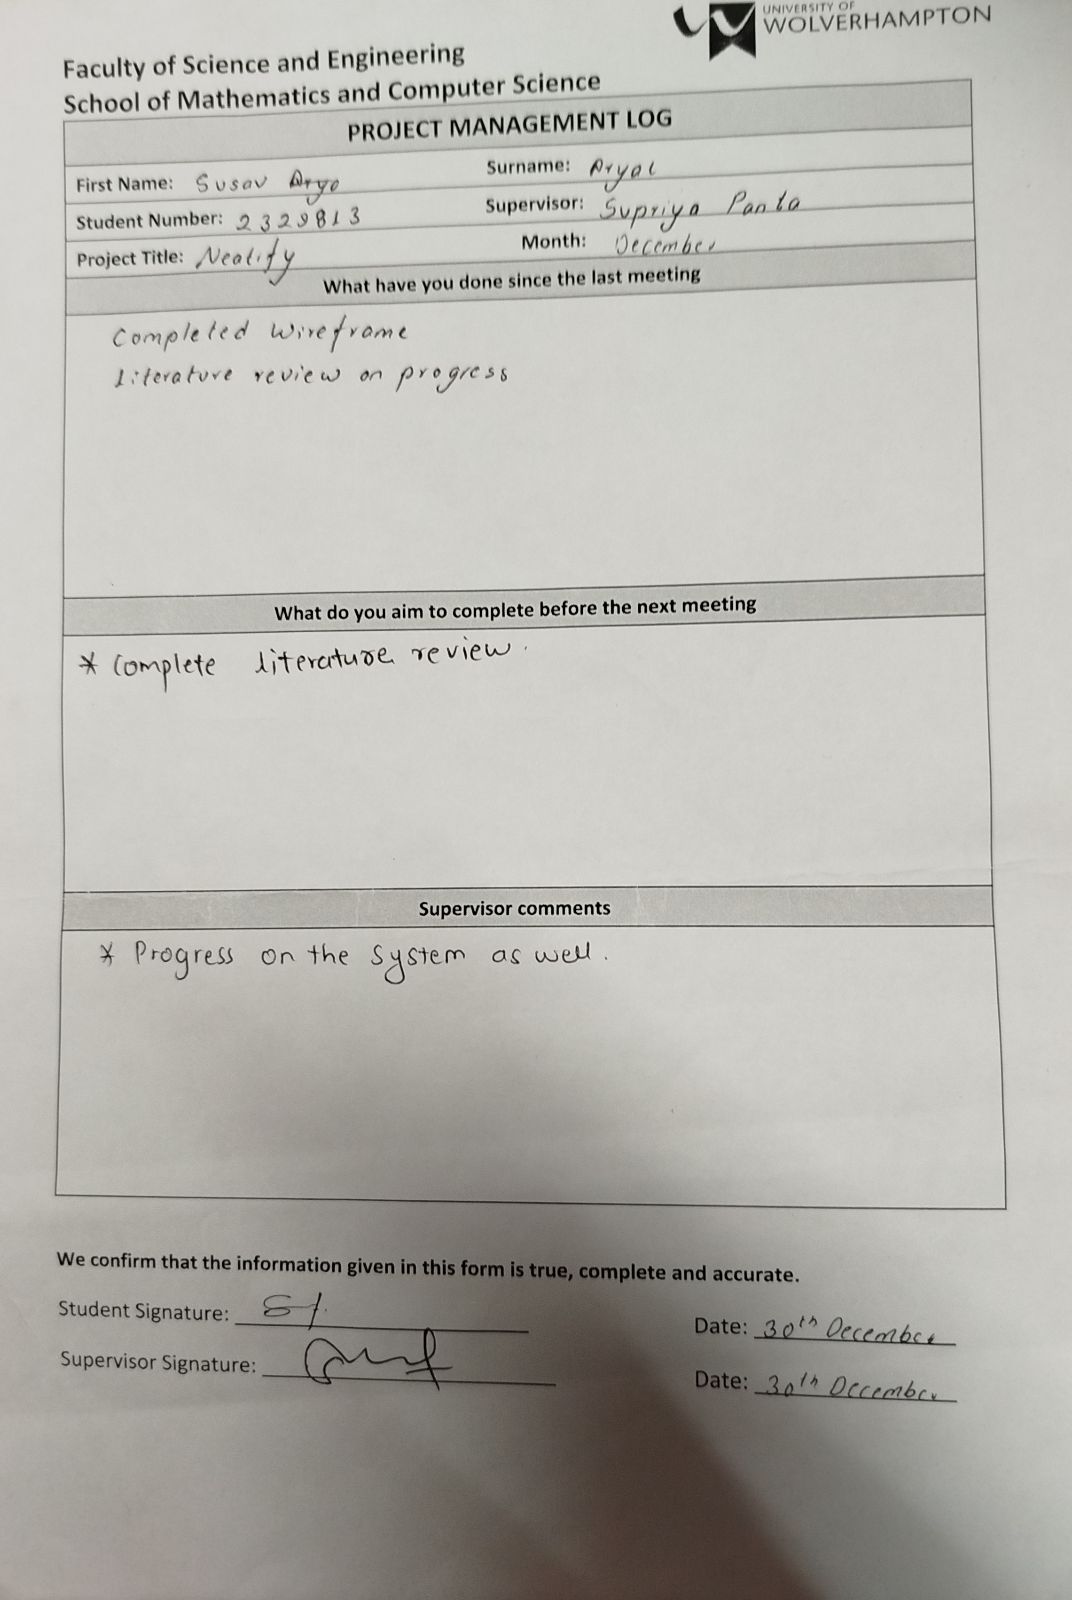 UNIVERSITY OF
WOLVERHAMPTON
Faculty of Science and Engineering
School of Mathematics and Computer Science
PROJECT MANAGEMENT LOG
First Name: Susav Arya Surname: Aryal
Student Number: 2329813 Supervisor: Supriya Panta
Project Title: Neatify Month: December
What have you done since the last meeting
Completed Wireframe
Literature review on progress
What do you aim to complete before the next meeting
* Complete literature review.
Supervisor comments
* Progress on the system as well.
We confirm that the information given in this form is true, complete and accurate.
Student Signature: Date: 30th December
Supervisor Signature: Date: 30th December